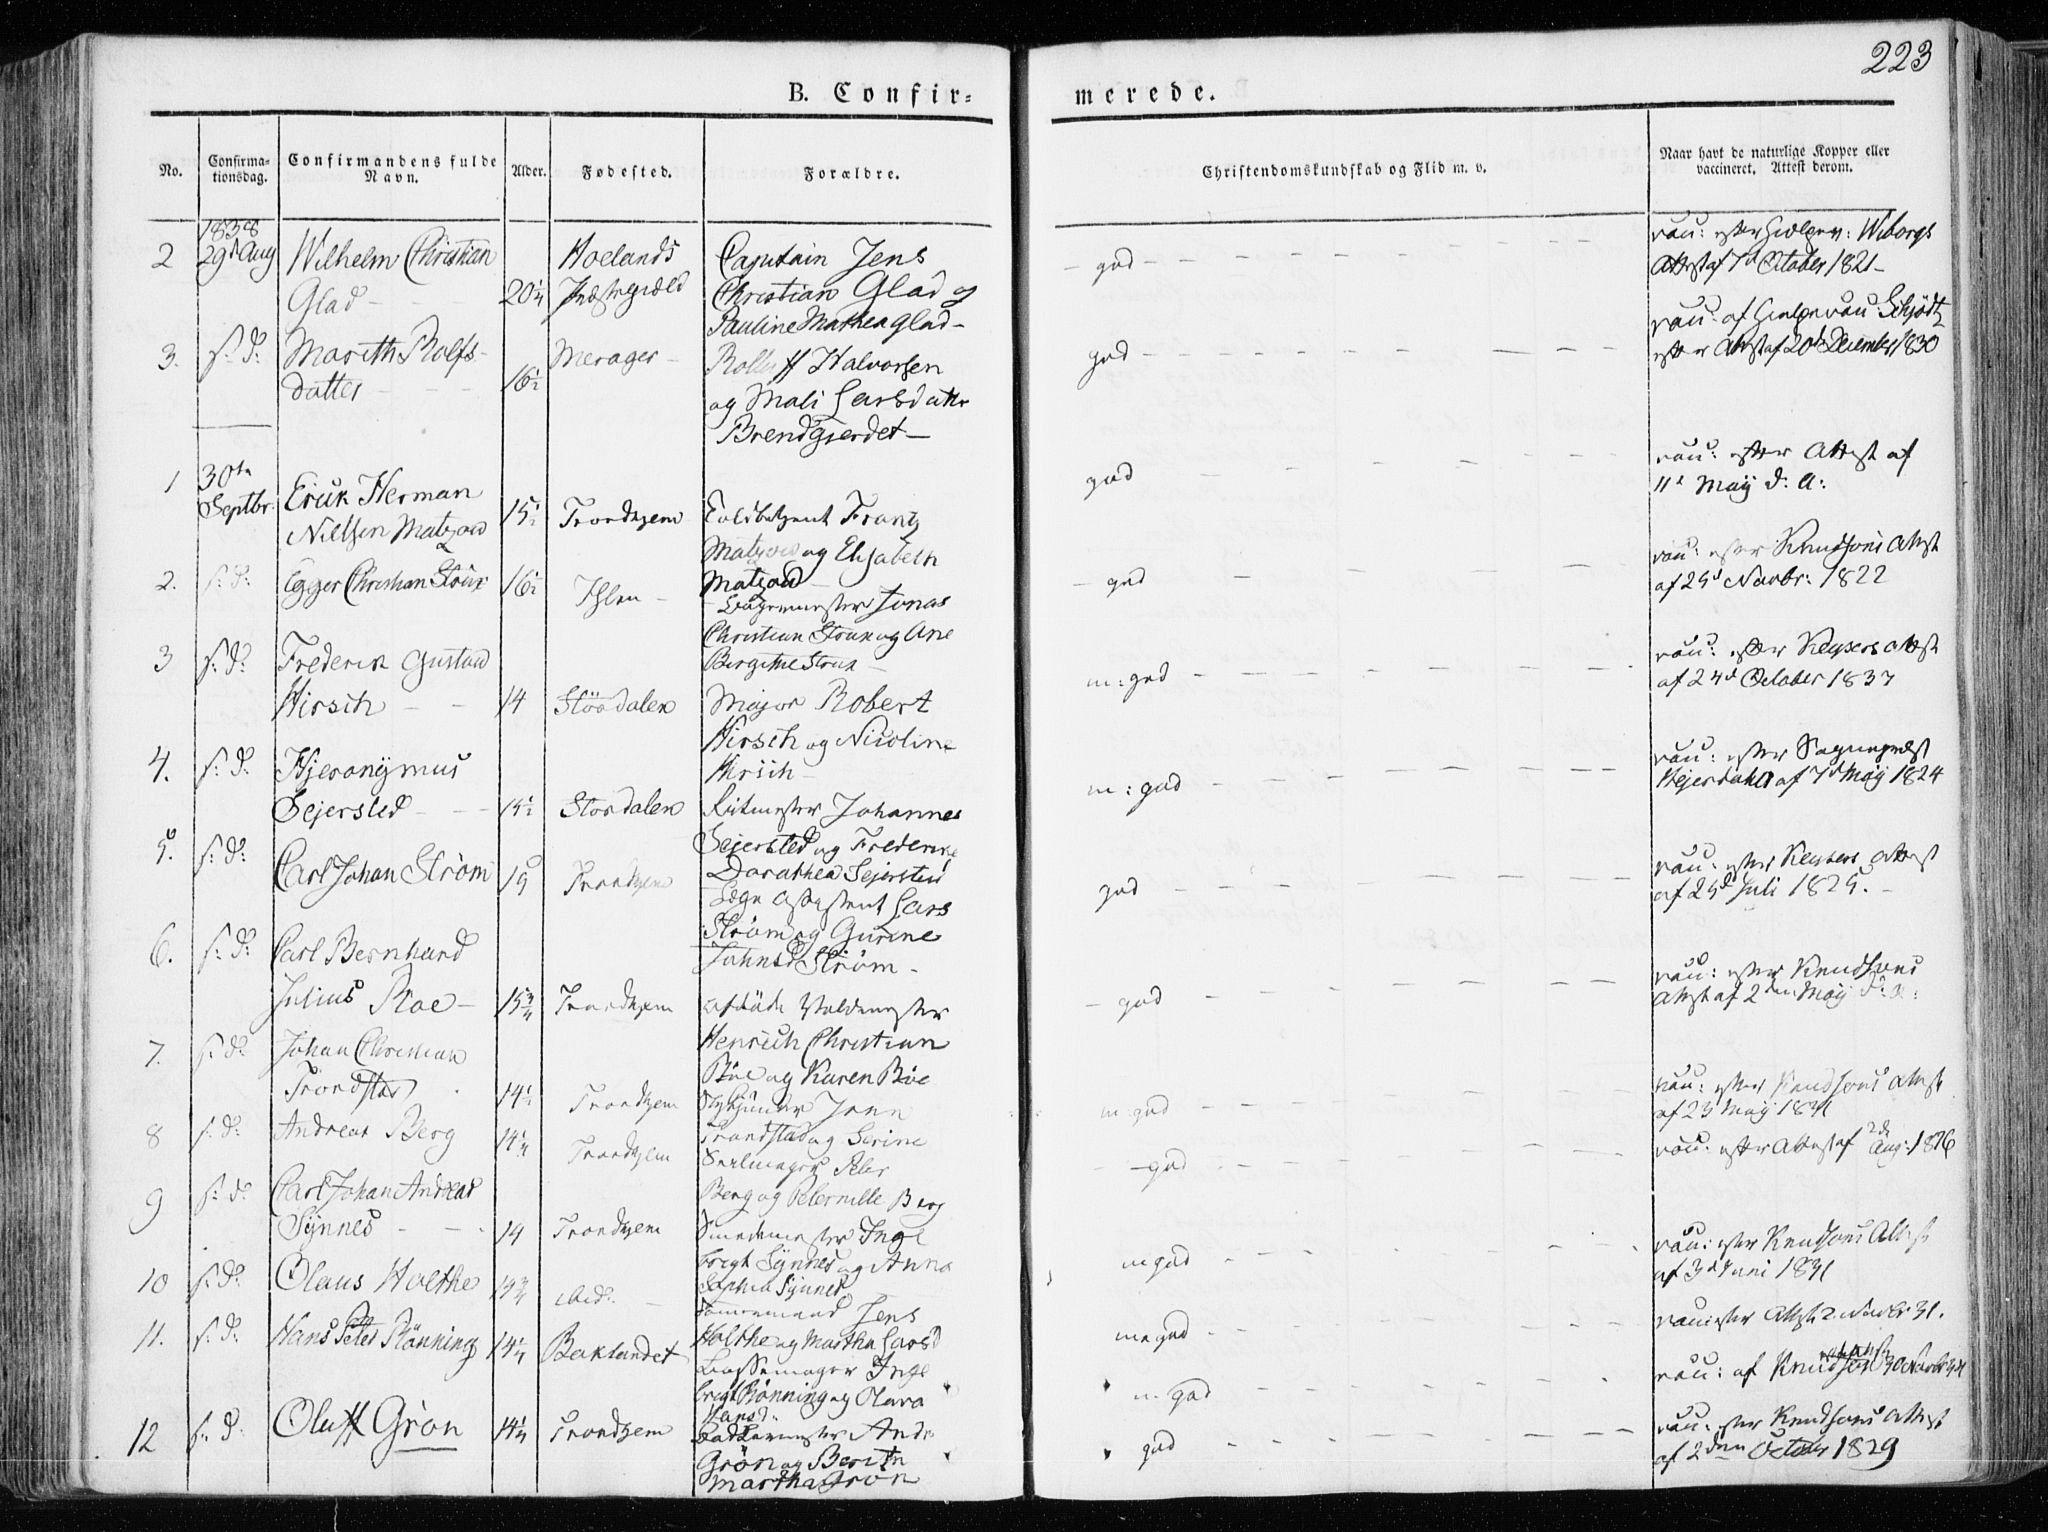 223
B. Confir=
merede.
No.
Confirma-
tionsdag.
Confirmandens fulde
Navn.
Alder.
Fødested.
Forældre.
Christendomskundskab og Flid m. v.
Naar havt de naturlige Kopper eller
vaccineret. Attest derom.
1838
2 29d Aug Wilhelm Christian Hoelands Capitain Jens
Glad 20¼ Præstegield Christian Glad og
Pauline Mathea Glad
god
Wiborgs
Attest af 7d October 1821
3. s: d: Marith Rolfs- Merager Halvorsen
datter 16½ og Mali Larsdatter
Brendgjerdet
god
vac: af Schjødtz
efter Attest af 20d December 1830
1 30te
Septbr. Erick Herman
Nilssen Matzow 15½ Trondhjem Frantz
Matzow og Elisabeth
Matzow
god
vac: efter Attest af
11t Maij d: A:
2. s: d: Christian 16½ Ihlen Jonas
Christian og Ane
god
vac: efter Knudsons Attest
af 25d Novbr: 1822
3 s: d: Frederik Gustav
Hirsch 14 Stördalen Major Robert
Hirsch og Nicoline
Hirsch
m: god
vac: efter Keysers Attest
af 24d October 1837
4. s: d: Hjeronymus
Sejersted 15½ Stördalen Ritmester Johannes
Sejersted og Frederike
Dorothea Sejersted
m: god
vac: efter Sogneprest
af 7d Maij 1824
5. s: d: Carl Johan Ström 15 Trondhjem Lars
Ström og Gurine
Ström
god
vac: efter Keysers Attest
af 25d Juli 1825.
6. s: d: Carl Bernhard
Julius Roe 15¾ Trondhjem
Henrich Christian
og Karen
god
vac: efter Knudsons
Attest af 2den Maij d: A:
7. s: d: Johan Christian
Trondstad 14½ Trondhjem
Trondstad og Serine
m: god
vac: efter Knudsons Attest
af 23 Maij 1831
8 s: d: Andreas Berg 14¼ Trondhjem Sadelmager Peter
Berg og Peternille Berg
god
vac: efter Attest af 2d Aug: 1826
9 s: d: Carl Johan Andreas
Synnes 14 Trondhjem Smedemester Inge
brigt Synnes og Anna
Sophia Synnes
m god
vac: efter Knudsons Attest
af 3d Juni 1831
10 s: d: Olaus Holthe 14¾ ibid: Jens
Holthe og Martha Larsd
m god
vac: efter Attest 2 Novbr 31.
11. s: d: Hans Peter Rönning 14¼ Baklandet Bössemager Inge
brigt Rönning og Olava
Hansd:
m. god
vac: af Knudson
12 s: d: Oluff Grön 14¼ Trondhjem
Grön og Berith
Martha Grön
god
vac: efter Knudsons Attest
af 2den October 1829